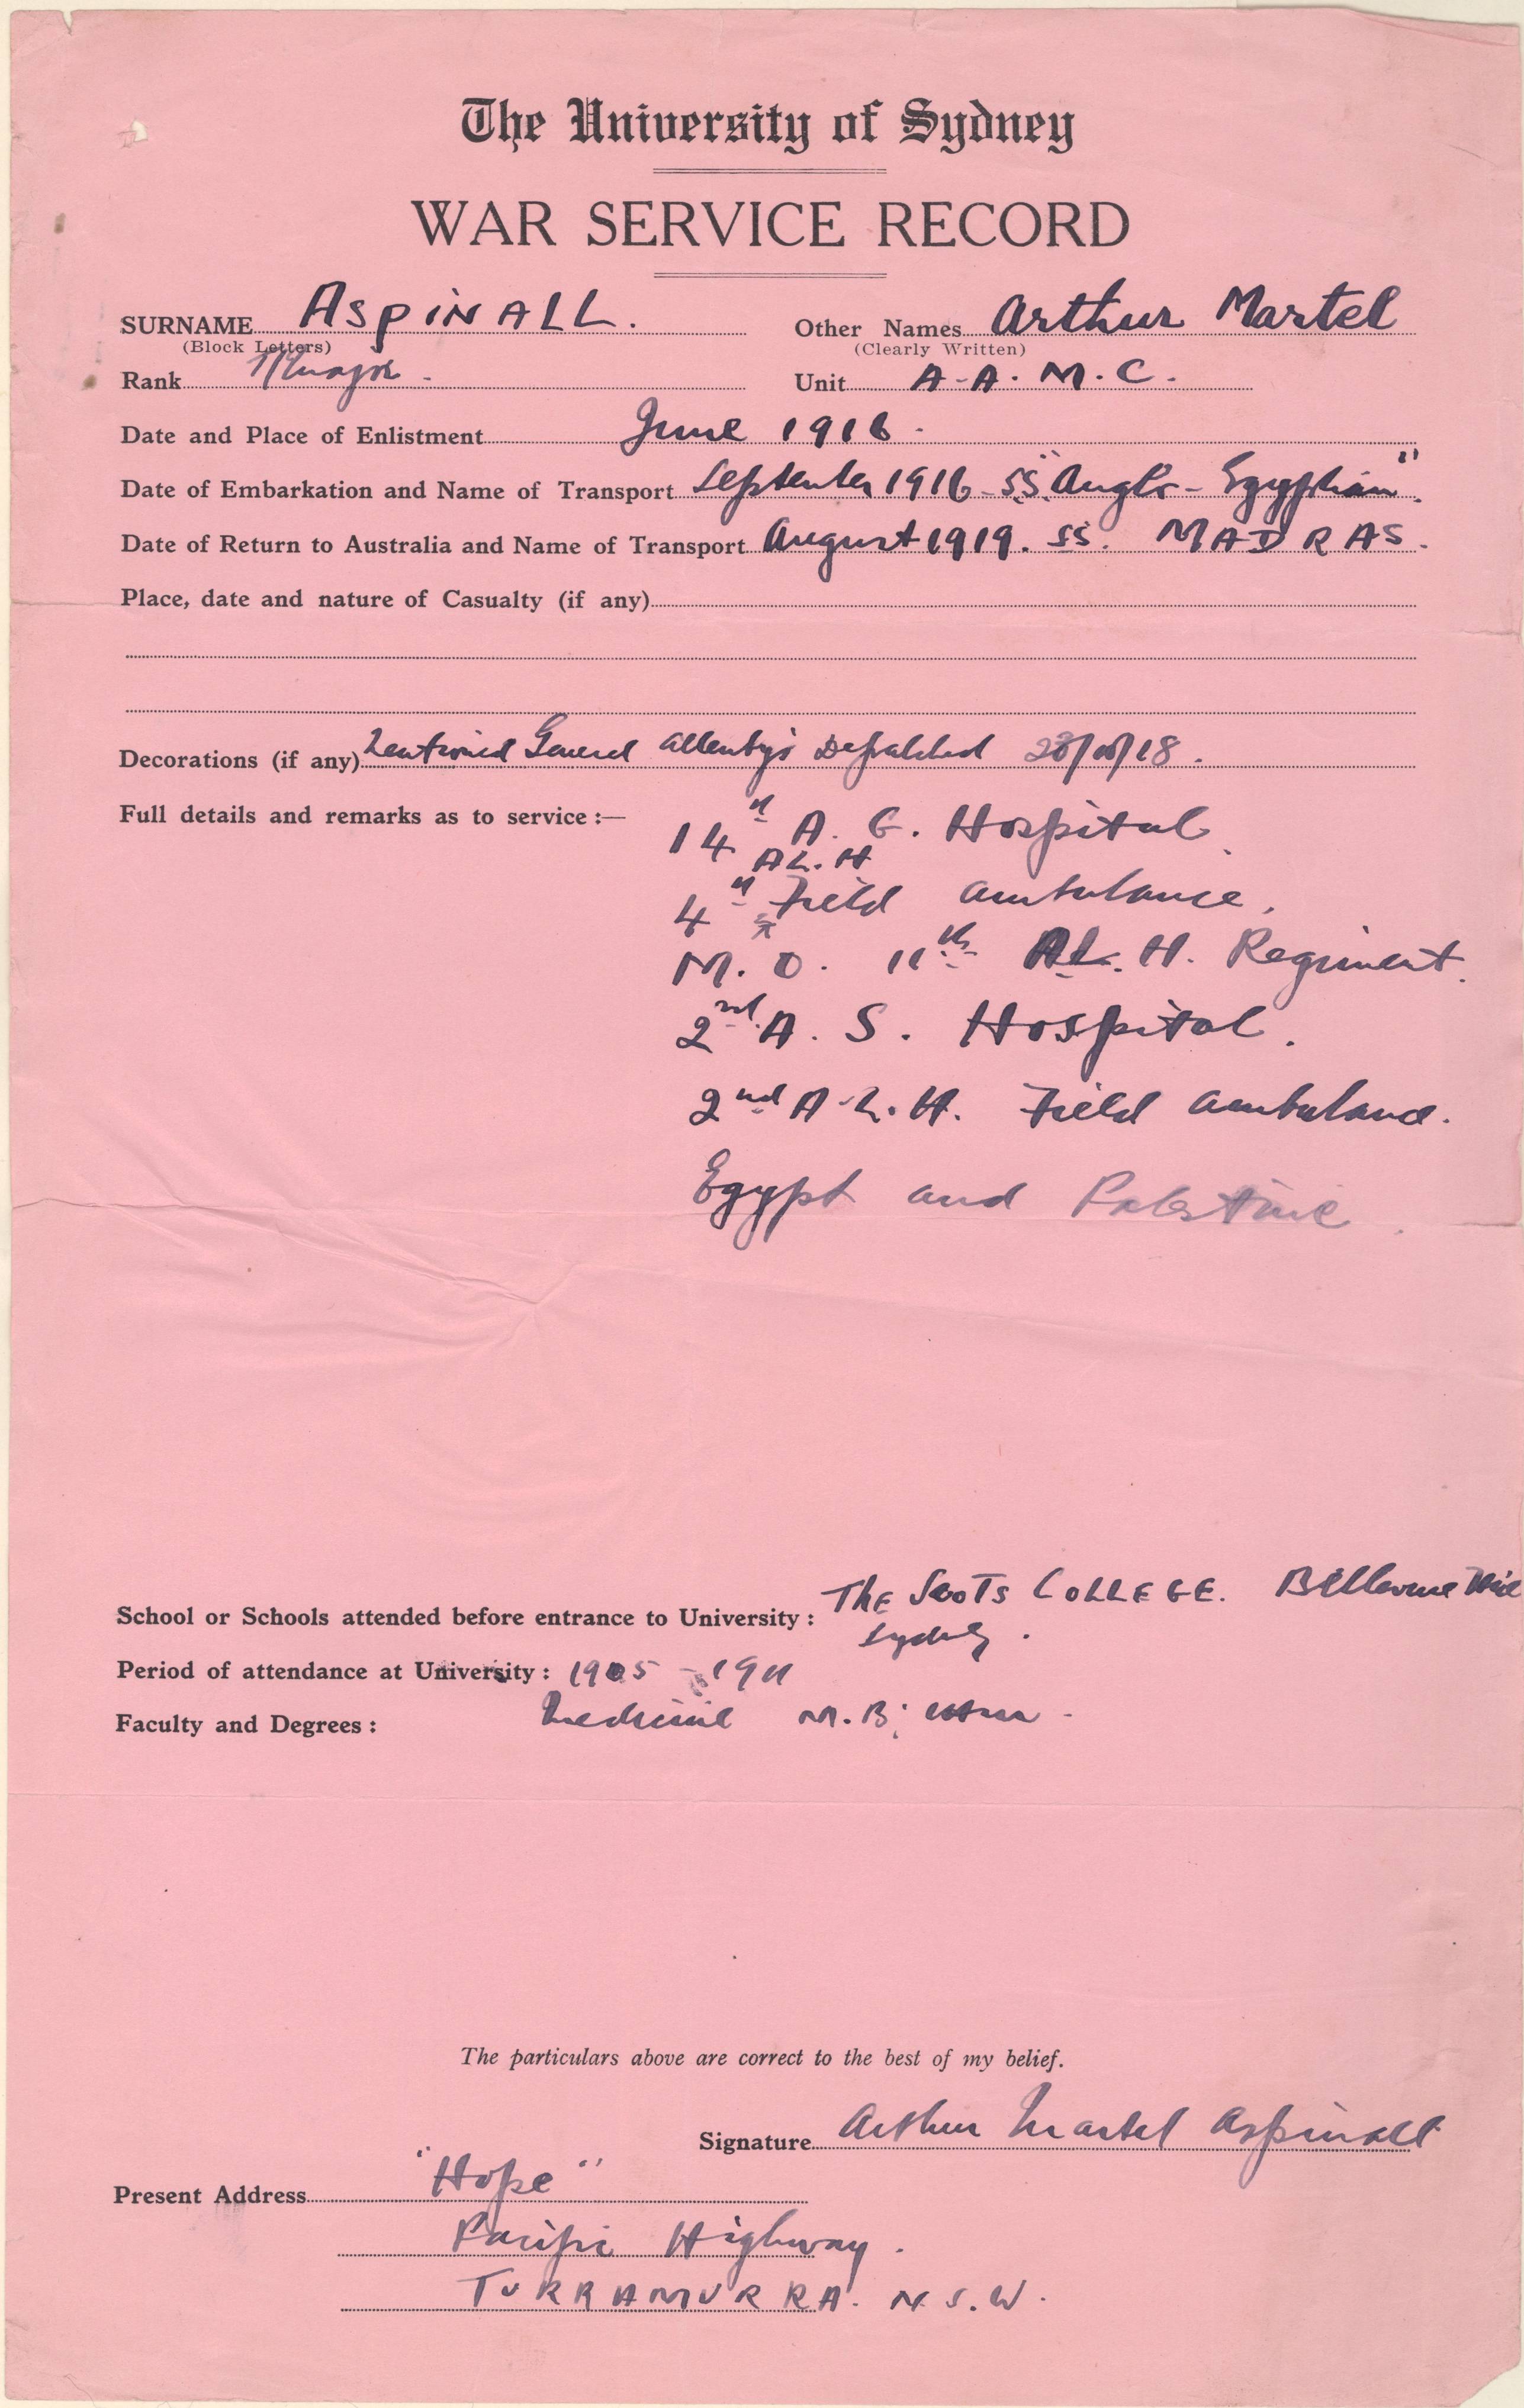 The University of Sydney
WAR SERVICE RECORD
SURNAME ASPINALL. Other Names Arthur Martel
(Block Letters) (Clearly Written)
Rank Major. Unit A.A.M.C.
Date and Place of Enlistment June 1916.
Date of Embarkation and Name of Transport September 1916 - SS. "Anglo-Egyptian".
Date of Return to Australia and Name of Transport August 1919. SS. MADRAS.
Place, date and nature of Casualty (if any)
Decorations (if any) Mentioned General Allenby's Despatches
Full details and remarks as to service :—
14th A. G. Hospital.
A L. H
4th Field Ambulance.
M. O. 11th A L. H. Regiment.
2nd A. S. Hospital.
2nd A. L. H. Field Ambulance.
Egypt and Palestine.
School or Schools attended before entrance to University : THE SCOTS COLLEGE. Bellevue Hill
Sydney.
Period of attendance at University : 1905 - 1911
Faculty and Degrees : Medicine M.B;
The particulars above are correct to the best of my belief.
Signature Arthur Martel Aspinall
Present Address "Hope"
Pacific Highway.
TURRAMURRA. N.S.W.